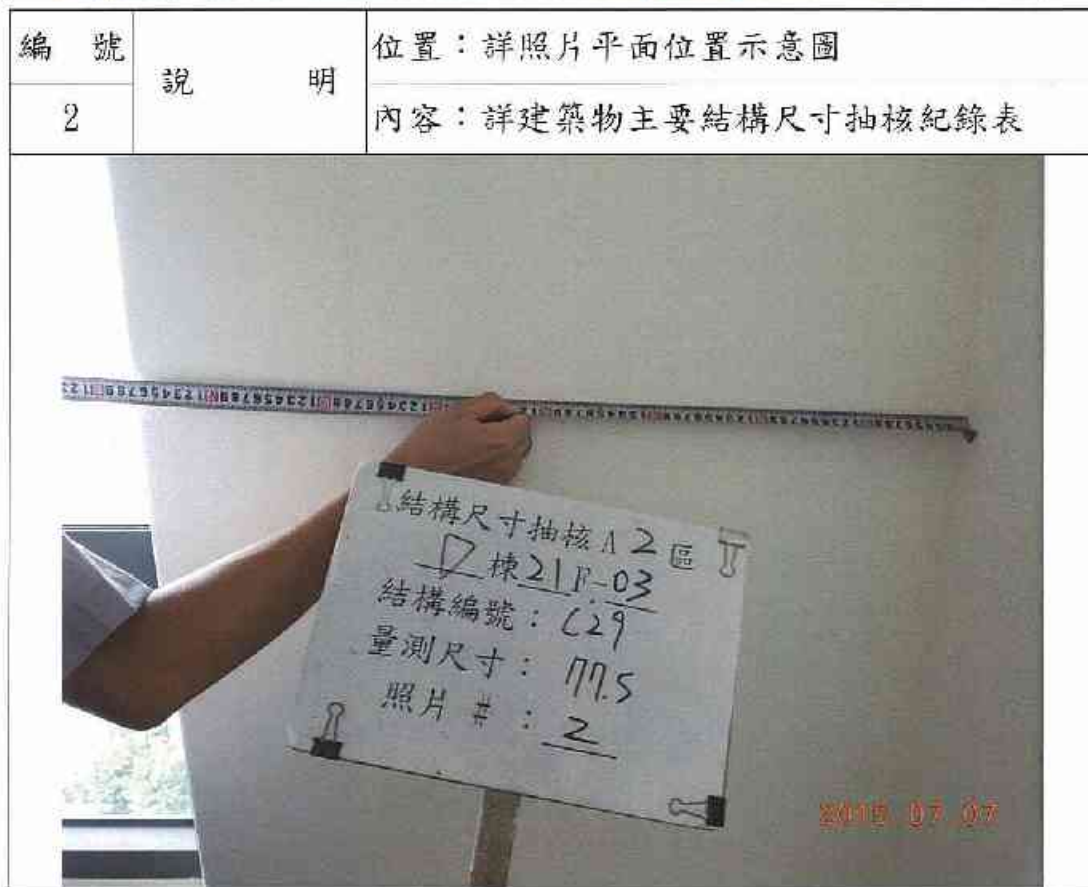 編 號
2
說 明
位置：詳照片平面位置示意圖
內容：詳建築物主要結構尺寸抽核紀錄表
結構尺寸抽核 A 2 區
D 棟 21 F-03
結構編號：C29
量測尺寸：77.5
照片 #：2